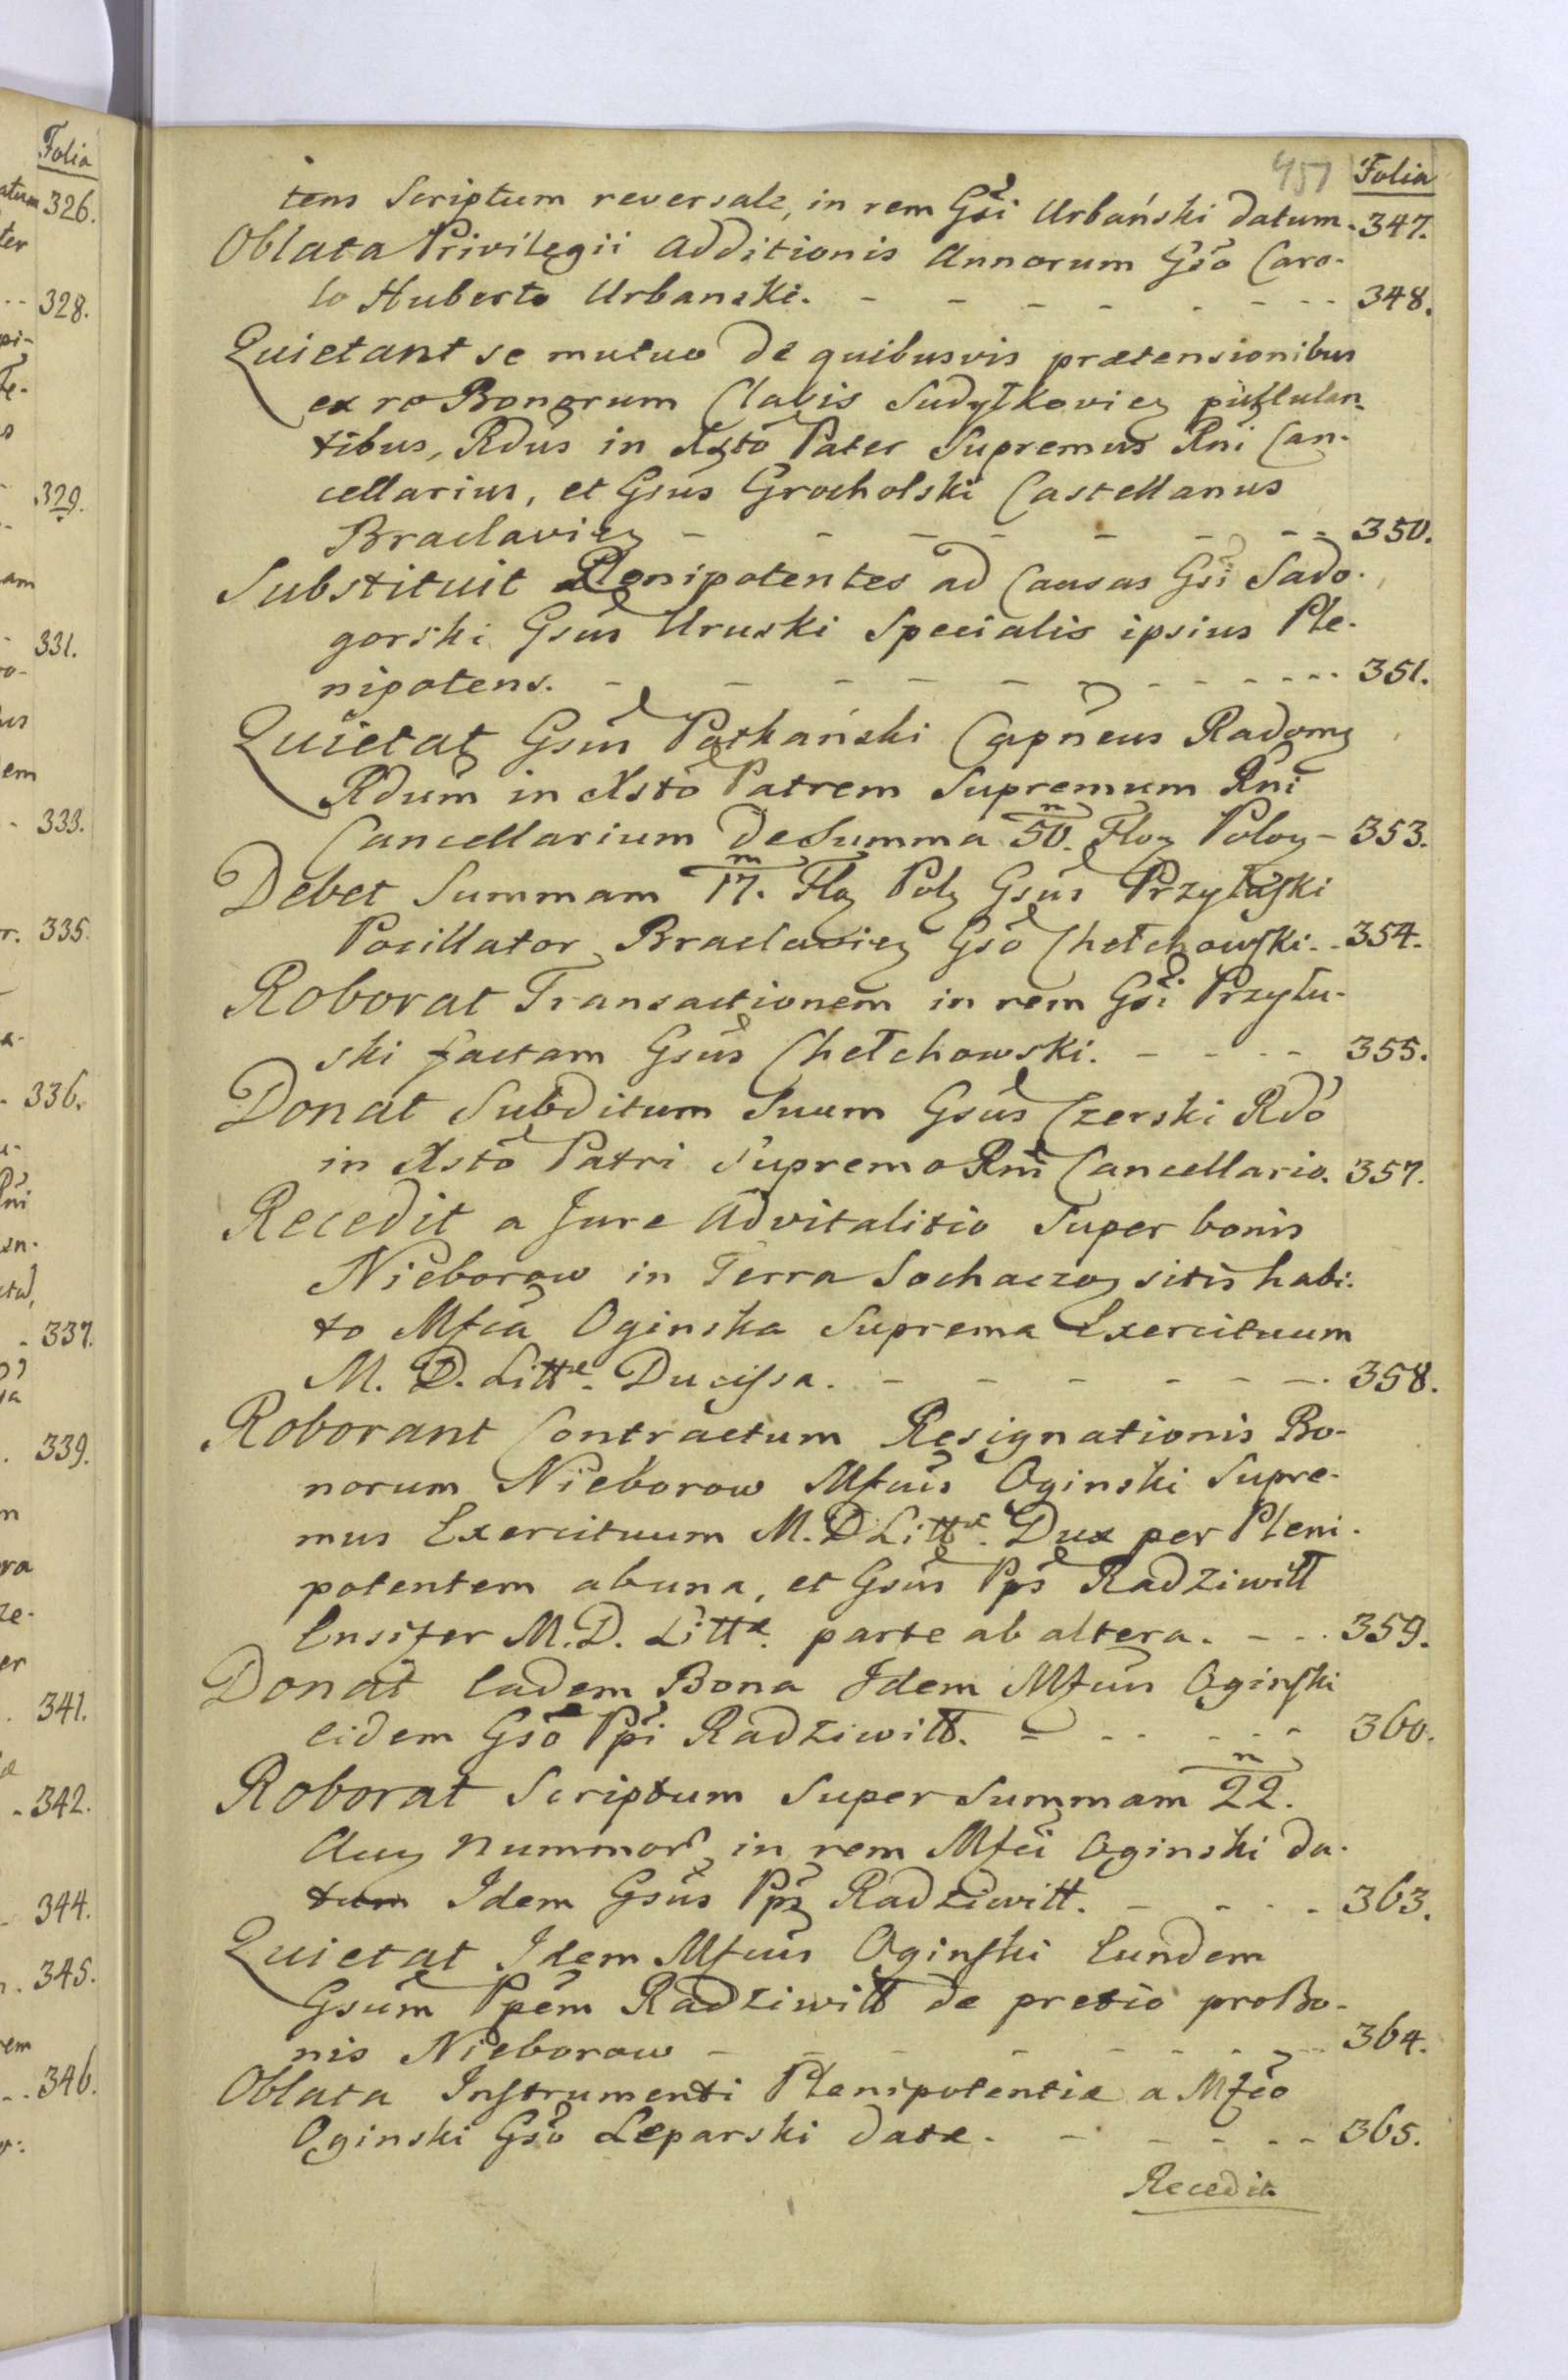 Folia
326.
328.
329.
331.
333.
335.
336.
337.
339.
341.
342.
344.
345.
346.
451 Folia
tens Scriptum reversale, in rem Gsi Urbański datum. 347.
Oblata Privilegii additionis Annorum Gso Caro-
lo Huberto Urbanski. - - - - - - - - 348.
Quietant se mutuo de quibusvis prætensionibus
ex re Bonorum Clavis Sudyłkovien pullulan-
tibus, Rdus in Xsto Pater Supremus Rni Can-
cellarius, et Gsus Grocholski Castellanus
Braclavien - - - - - - - - 350.
Substituit Plenipotentes ad Causas Gsi Sado-
gorski Gsus Uruski Specialis ipsius Ple-
nipotens. - - - - - - - - - - 351.
Quietat Gsus Potkański Capneus Radom
Rdum in Xsto Patrem Supremum Rni
Cancellarium de Summa 50. m Flor Polon - 353.
Debet Summam 17. m Flor Pol Gsus Przyłuski
Pocillator Braclavien Gso Chełchowski. - 354.
Roborat Transactionem in rem Gsi Przyłu-
ski factam Gsus Chełchowski. - - - - 355.
Donat Subditum Suum Gsus Czerski Rdo
in Xsto Patri Supremo Rni Cancellario. 357.
Recedit a Jure Advitalitio Super bonis
Nieborow in Terra Sochaczov sitis habi-
to Mfca Oginska Suprema Exercituum
M. D. Littæ. Ducissa. - - - - - - - 358.
Roborant Contractum Resignationis Bo-
norum Nieborow Mfcus Oginski Supre-
mus Exercituum M. D Littæ. Dux per Pleni-
potentem ab una, et Gsus Pps Radziwiłł
Ensifer M. D. Littæ. parte ab altera. - - - 359.
Donat Eadem Bona Idem Mfcus Oginski
eidem Gso Ppi Radziwiłł. - - - - - - 360.
Roborat Scriptum Super Summam 22. m
Aur Nummor in rem Mfci Oginski da-
tum Idem Gsus Pps Radziwiłł. - - - - 363.
Quietat Idem Mfcus Oginski Eundem
Gsum Ppem Radziwiłł de pretio pro Bo-
nis Nieborow - - - - - - - - 364.
Oblata Instrumenti Plenipotentiæ a Mfco
Oginski Gso Leparski datæ. - - - - - 365.
Recedit